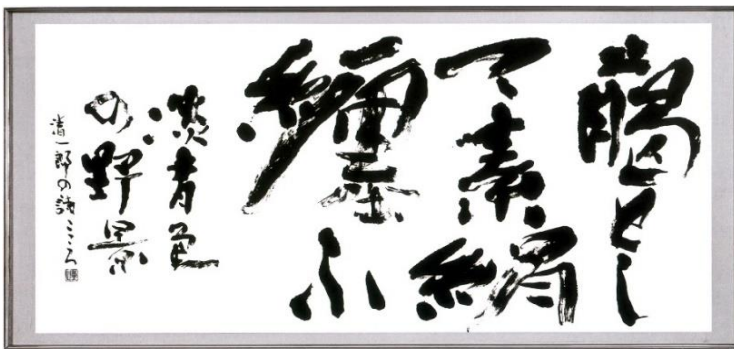 とし
て素絹
纏ふ
淡青色
の野景
清一郎の詩こころ